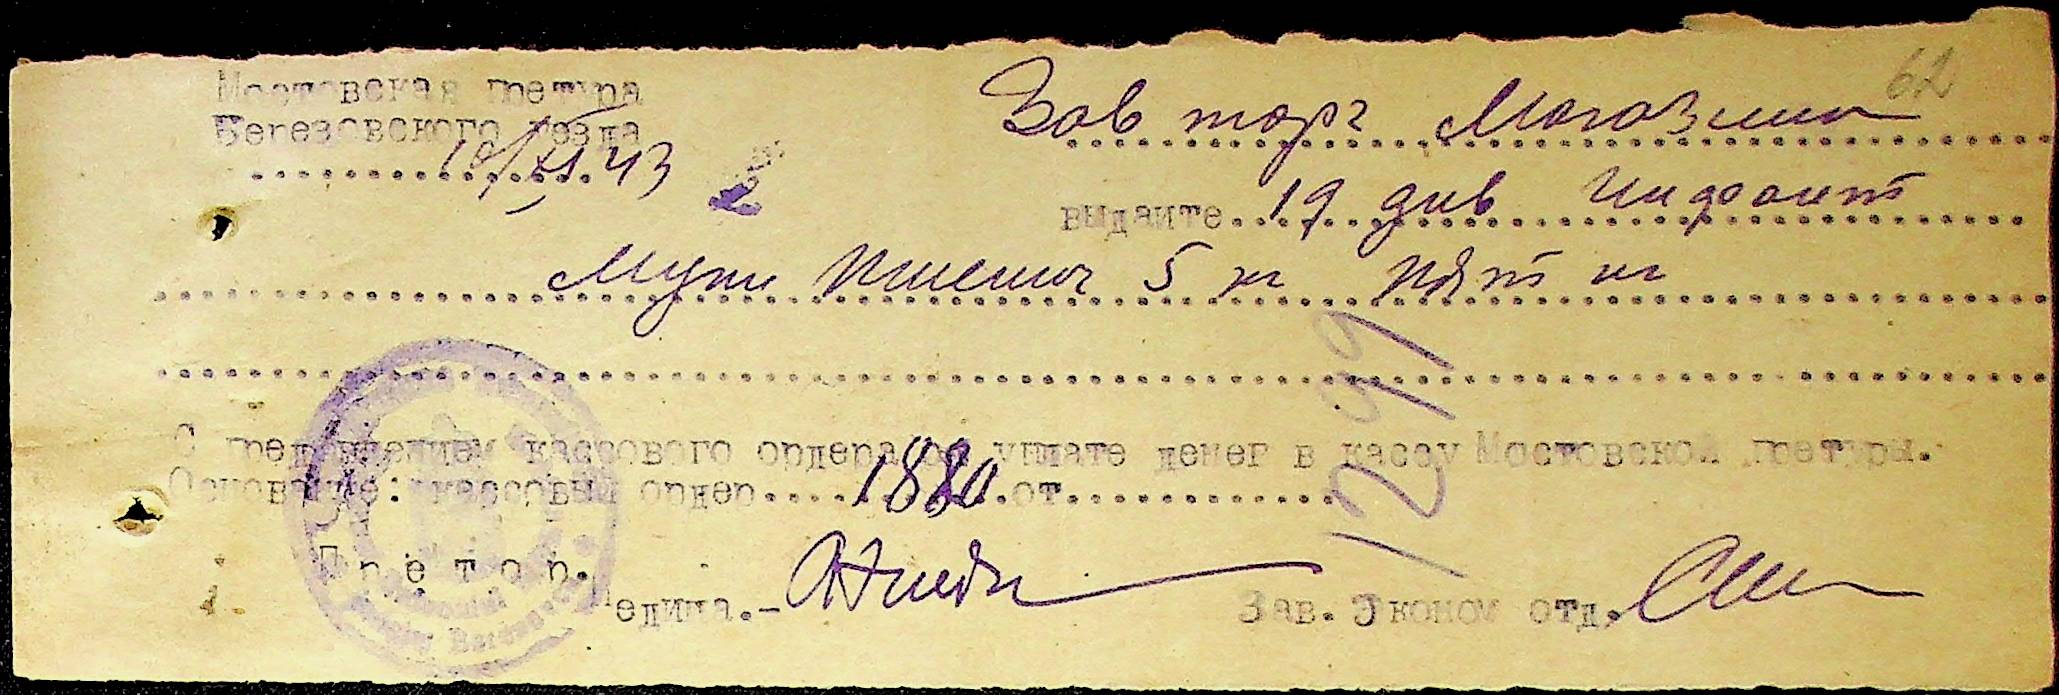 62
Мостовская претура
Березовского уезда
10/XI.43
Зав торг Магазина
выдайте 19 див Инфант
Муки Пшенич 5 кг пят кг
1299
С предъявлением кассового ордера об уплате денег в кассу Мостовской претуры.
Основание: кассовый ордер 1880 от
Претор.
Зав. Эконом отд.